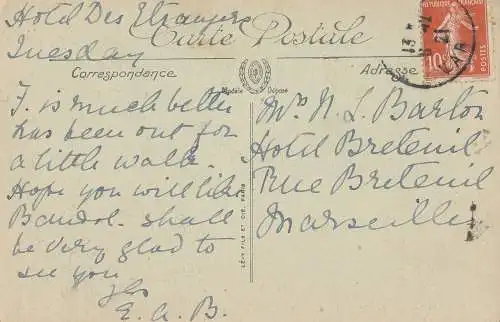 Hotel Des Etrangers
Tuesday
Carte Postale
Correspondance
Adresse
Modèle Déposé
RÉPUBLIQUE FRANÇAISE
10
POSTES
VAR
T. is much better
has been out for
a little walk.
Hope you will like
Bandol. shall
be very glad to
see you
Yrs
E. A. B.
LÉVY FILS ET CIE, PARIS
Mrs N. L. Barton
Hotel Breteuil
Rue Breteuil
Marseille